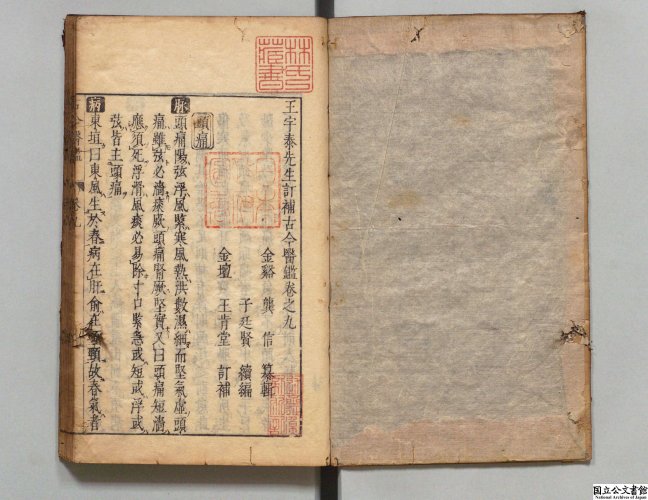 王宇泰先生訂補古今醫鑑卷之九
金谿 龔 信 纂輯
子廷賢 續編
金壇 王肯堂 訂補
頭痛
脉 頭痛陽弦浮風緊寒風熱洪數濕細而堅氣虛頭
痛雖弦必濇痰厥頭痛腎厥堅實又曰頭痛短濇
應須死浮滑風痰必易除寸口緊急或短或浮或
弦皆主頭痛
病 東垣曰東風生於春病在肝俞在頸項故春氣者
古今醫鑑 卷九
林氏藏書
日本
國立公文書館
National Archives of Japan